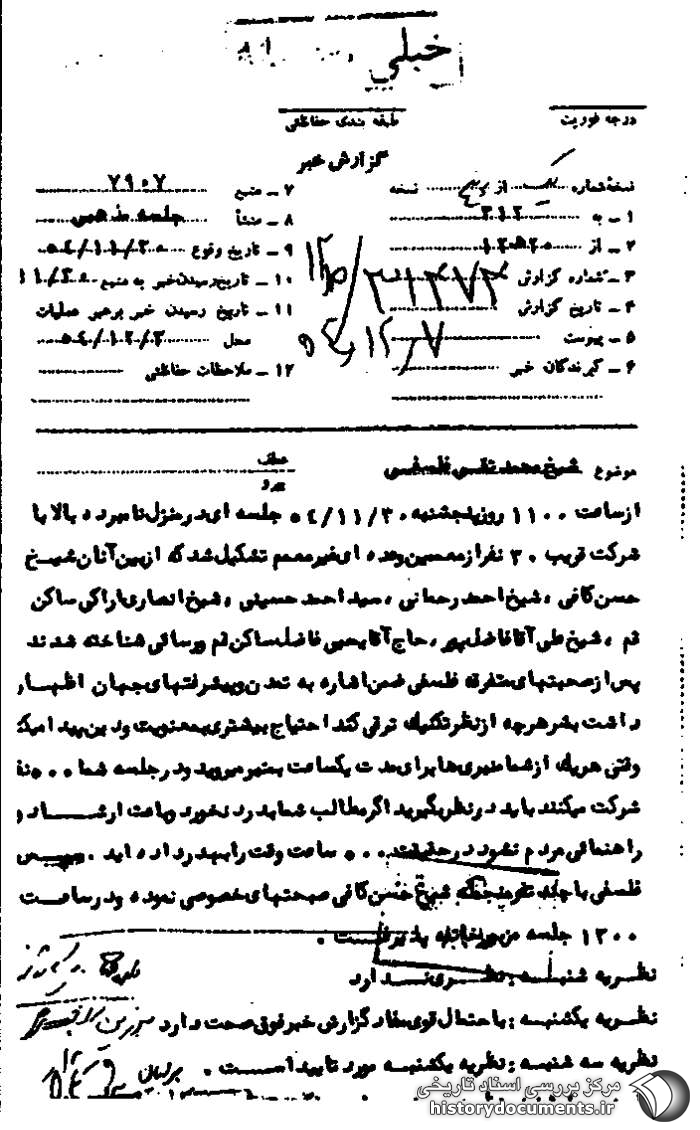 خیلی
درجه فوریت
طبقه بندی حفاظتی
گزارش خبر
نسخه شماره از نسخه
۱ – به ۳۱۲
۲ – از ۲۰ﻫ۱۲
۳ – شماره گزارش
۴ – تاریخ گزارش
۵ – پیوست
۶ – گیرندگان خبر
۷ – منبع ۷۹۰۷
۸ – منشأ جلسه مذهبی
۹ – تاریخ وقوع ۵۴/۱۱/۳۰
۱۰ – تاریخ رسیدن خبر به منبع ۱۱/۳۰
۱۱ – تاریخ رسیدن خبر برهبر عملیات
محل ۵۴/۱۲/۲
۱۲ – ملاحظات حفاظتی
موضوع شیخ محمد تقی فلسفی
عطف
پیرو
ازساعت ۱۱۰۰ روز پنجشنبه ۵۴/۱۱/۳۰ جلسه ای در منزل نامبرده بالا با
شرکت قریب ۳۰ نفر از معممین وعده ای غیر معمم تشکیل شد که از بین آنان شیخ
حسن کافی ، شیخ احمد رحمانی ، سید احمد حسینی ، شیخ انصاری اراکی ساکن
قم ، شیخ علی آقا فاضل پور ، حاج آقا یحیی فاضل ساکن قم ورسائی شناخته شدند
پس از صحبتهای متفرقه فلسفی ضمن اشاره به تمدن و پیشرفتهای جهان اظهار
داشت بشر هر چه از نظر تکنیک ترقی کند احتیاج بیشتری بمعنویت و دین پیدا میکند
وقتی هریک از شما منبری ها برای مدت یکساعت بمنبر میروید و در جلسه شما ۵۰۰ نفر
شرکت میکنند باید در نظر بگیرید اگر مطالب شما بدرد نخورد وباعث ارشاد و
راهنمائی مردم نشود در حقیقت ۵۰۰ ساعت وقت را بهدر داده اید . سپس
فلسفی با چند نفر منجمله شیخ حسن کافی صحبتهای خصوصی نموده و در ساعت
۱۳۰۰ جلسه مزبور خاتمه پذیرفت .
نظریه شنبه : نظری ندارد
نظریه یکشنبه : با احتمال قوی مفاد گزارش خبر فوق صحت دارد
نظریه سه شنبه : نظریه یکشنبه مورد تایید است .
مرکز بررسی اسناد تاریخی
historydocuments.ir